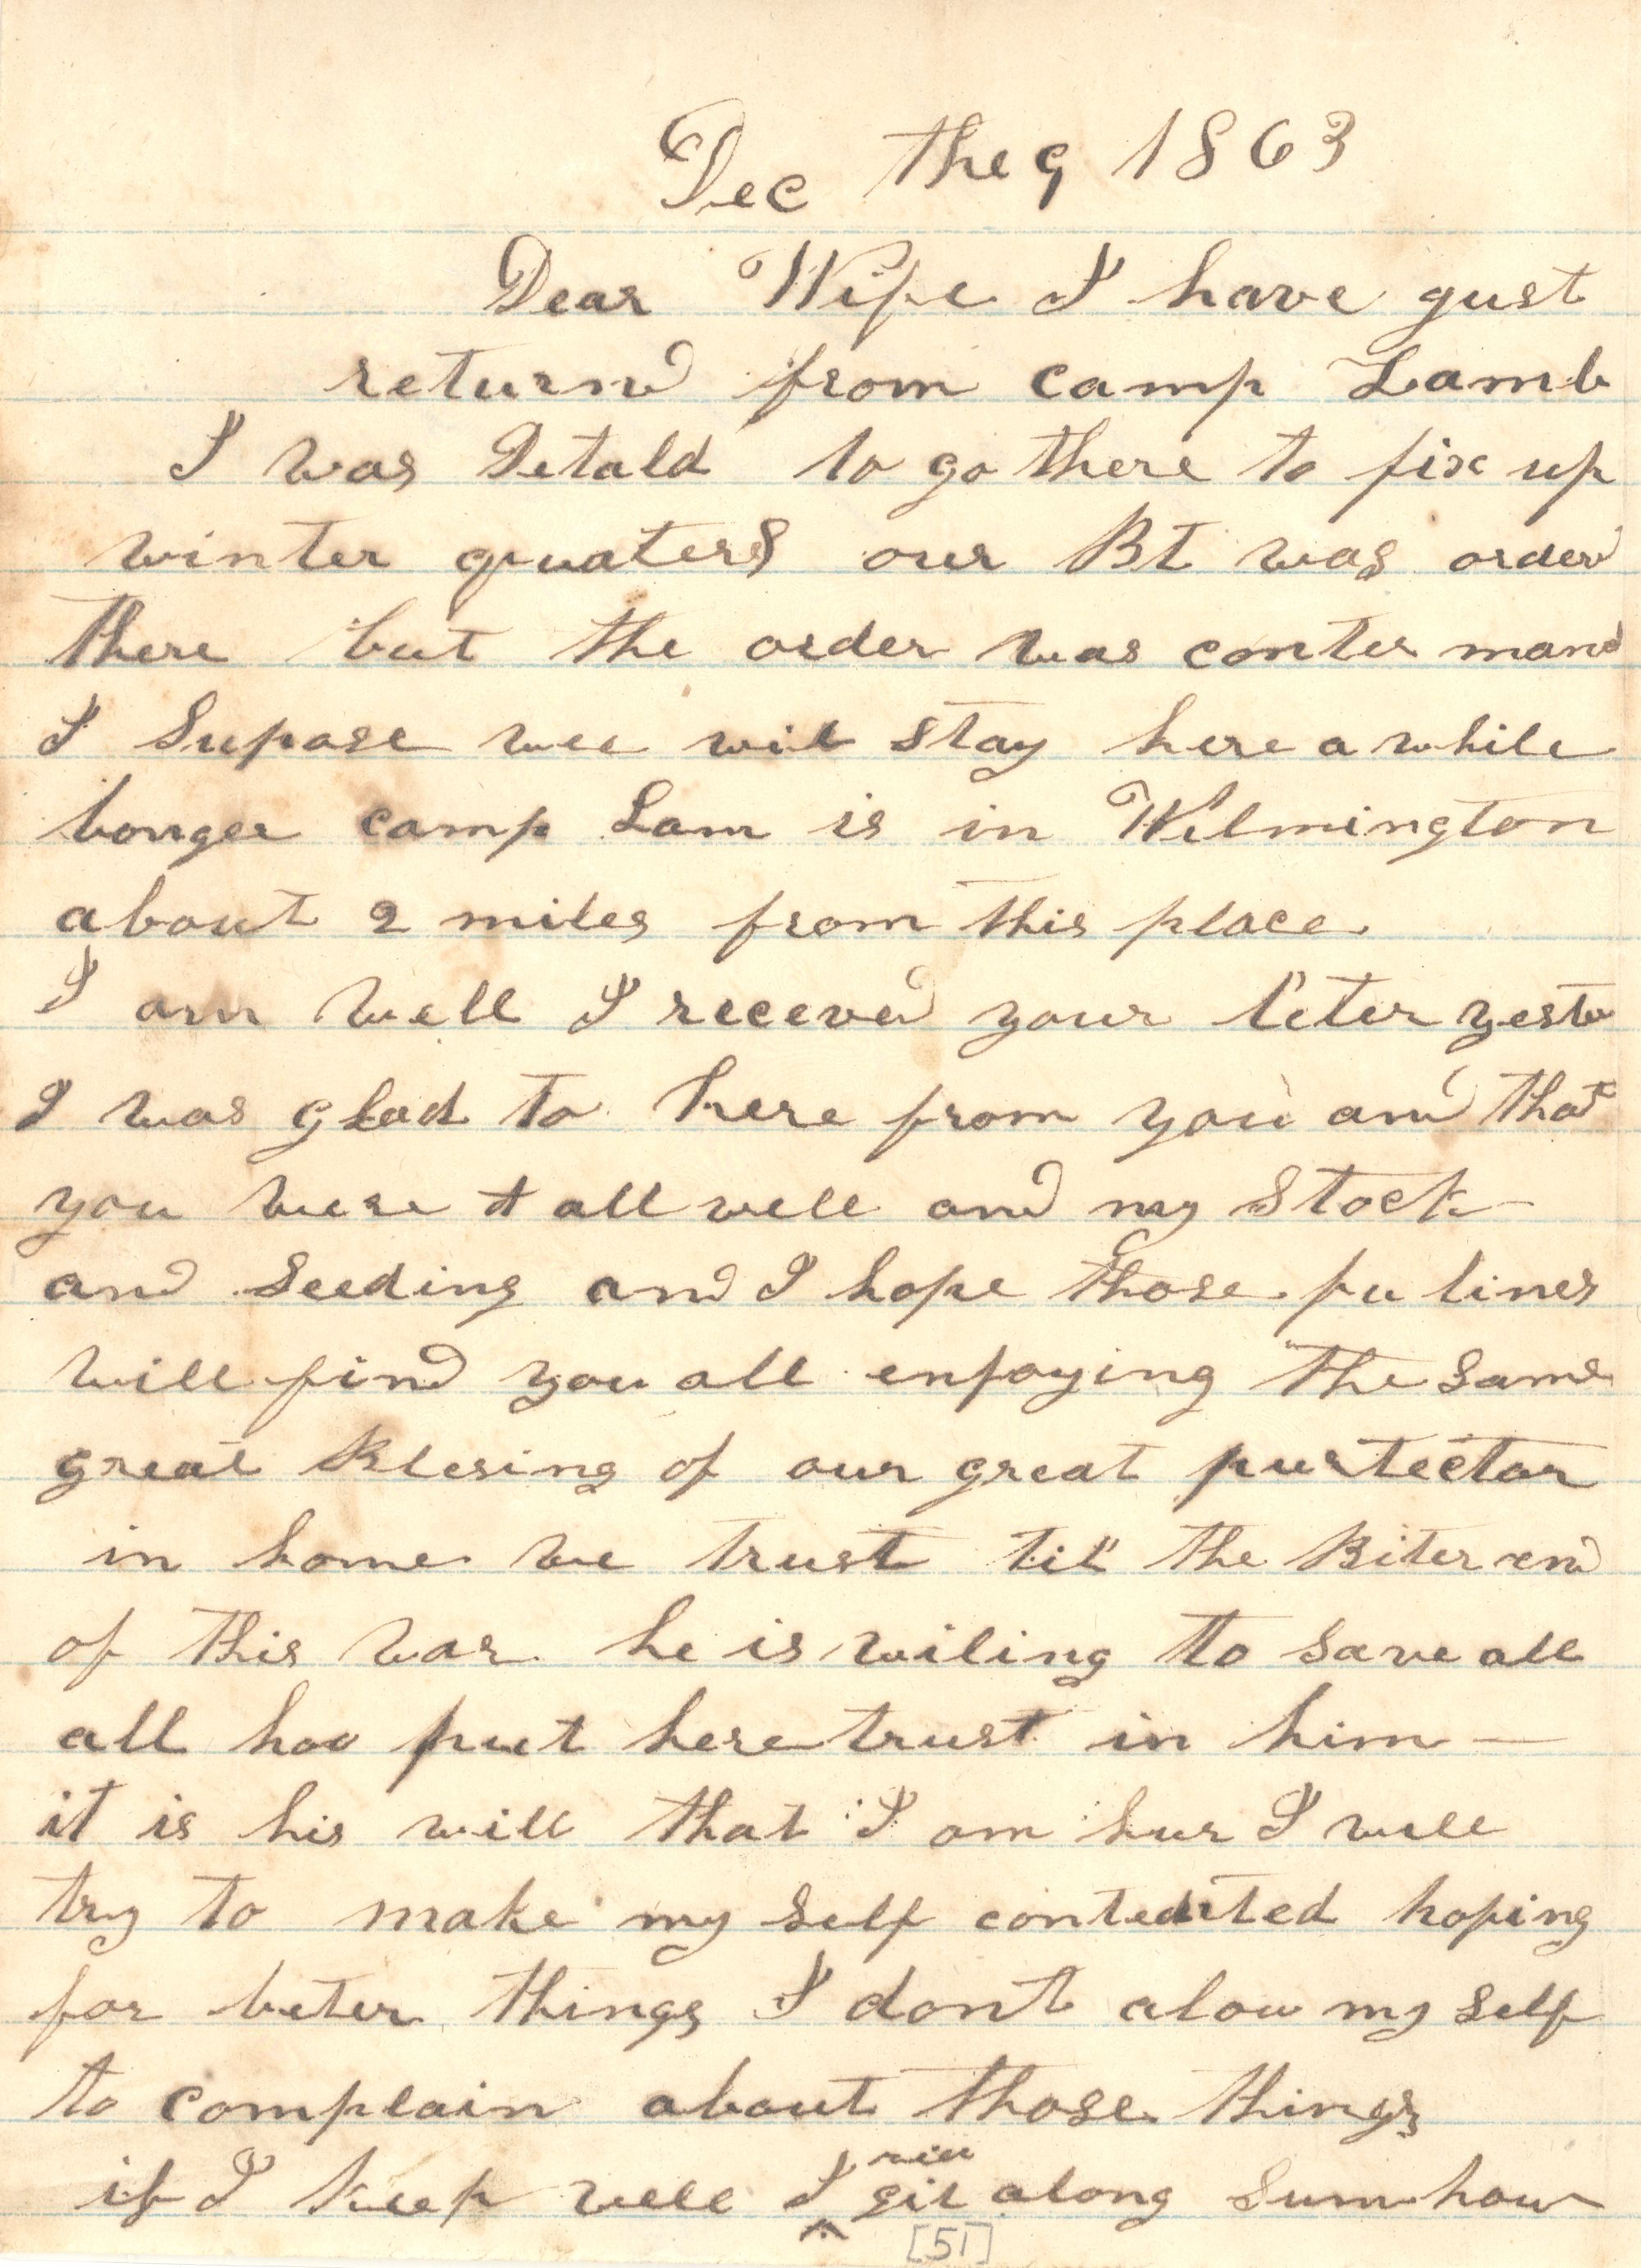 Dec the 9 1863
Dear Wife I have gust
returnd from camp Lamb
I was Detald to go there to fix up
winter quaters our Bt was orderd
there but the order was conter mand
I Supose wee will stay here a while
longer camp Lam is in Wilmington
about 2 miles from this place
I am well I receved your leter yester
I was glad to here from you and that
you were all well and my Stock
and Seeding and I hope those fu lines
will find you all enjoying the same
great Blesing of our great purtector
in home we trust till the Biter end
of this war he is wiling to save all
all hoo put here trust in him
it is his will that I am hur I will
try to make my self contented hoping
for beter things I dont alow my self
to complain about those things
if I keep well I will git along sum how
[51]